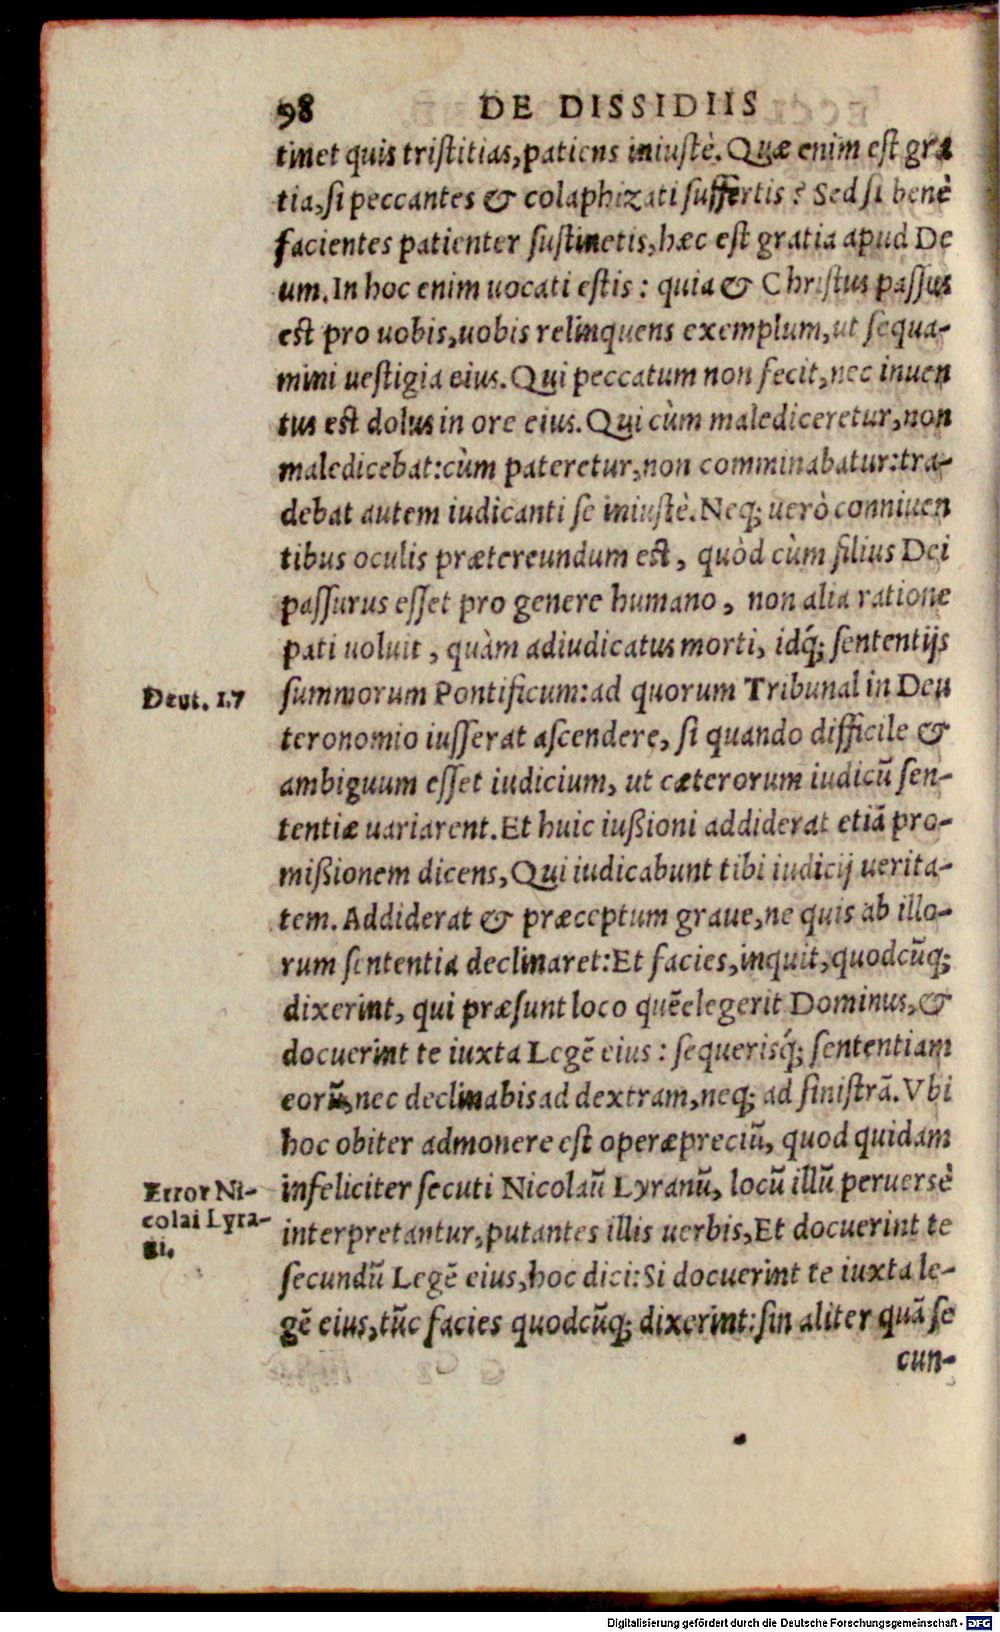 98 DE DISSIDIIS
tinet quis tristitias, patiens iniustè. Quæ enim est gra
tia, si peccantes & colaphizati suffertis? Sed si benè
facientes patienter sustinetis, hæc est gratia apud De
um. In hoc enim uocati estis: quia & Christus passus
est pro uobis, uobis relinquens exemplum, ut sequa-
mini uestigia eius. Qui peccatum non fecit, nec inuen
tus est dolus in ore eius. Qui cùm malediceretur, non
maledicebat: cùm pateretur, non comminabatur: tra-
debat autem iudicanti se iniustè. Neq; uerò conniuen
tibus oculis prætereundum est, quòd cùm filius Dei
passurus esset pro genere humano, non alia ratione
pati uoluit, quàm adiudicatus morti, idq́; sententijs
Deut. 17
summorum Pontificum: ad quorum Tribunal in Deu
teronomio iusserat ascendere, si quando difficile &
ambiguum esset iudicium, ut cæterorum iudicũ sen-
tentiæ uariarent. Et huic iußioni addiderat etiã pro-
mißionem dicens, Qui iudicabunt tibi iudicij uerita-
tem. Addiderat & præceptum graue, ne quis ab illo-
rum sententia declinaret: Et facies, inquit, quodcũq;
dixerint, qui præsunt loco quẽ elegerit Dominus, &
docuerint te iuxta Legẽ eius: sequerisq́; sententiam
eorũ, nec declinabis ad dextram, neq; ad sinistrã. Vbi
hoc obiter admonere est operæpreciũ, quod quidam
Error Ni-
colai Lyra-
ni.
infeliciter secuti Nicolaũ Lyranũ, locũ illũ peruersè
interpretantur, putantes illis uerbis, Et docuerint te
secundũ Legẽ eius, hoc dici: Si docuerint te iuxta le-
gẽ eius, tũc facies quodcũq; dixerint: sin aliter quã se
cun-
Digitalisierung gefördert durch die Deutsche Forschungsgemeinschaft - DFG